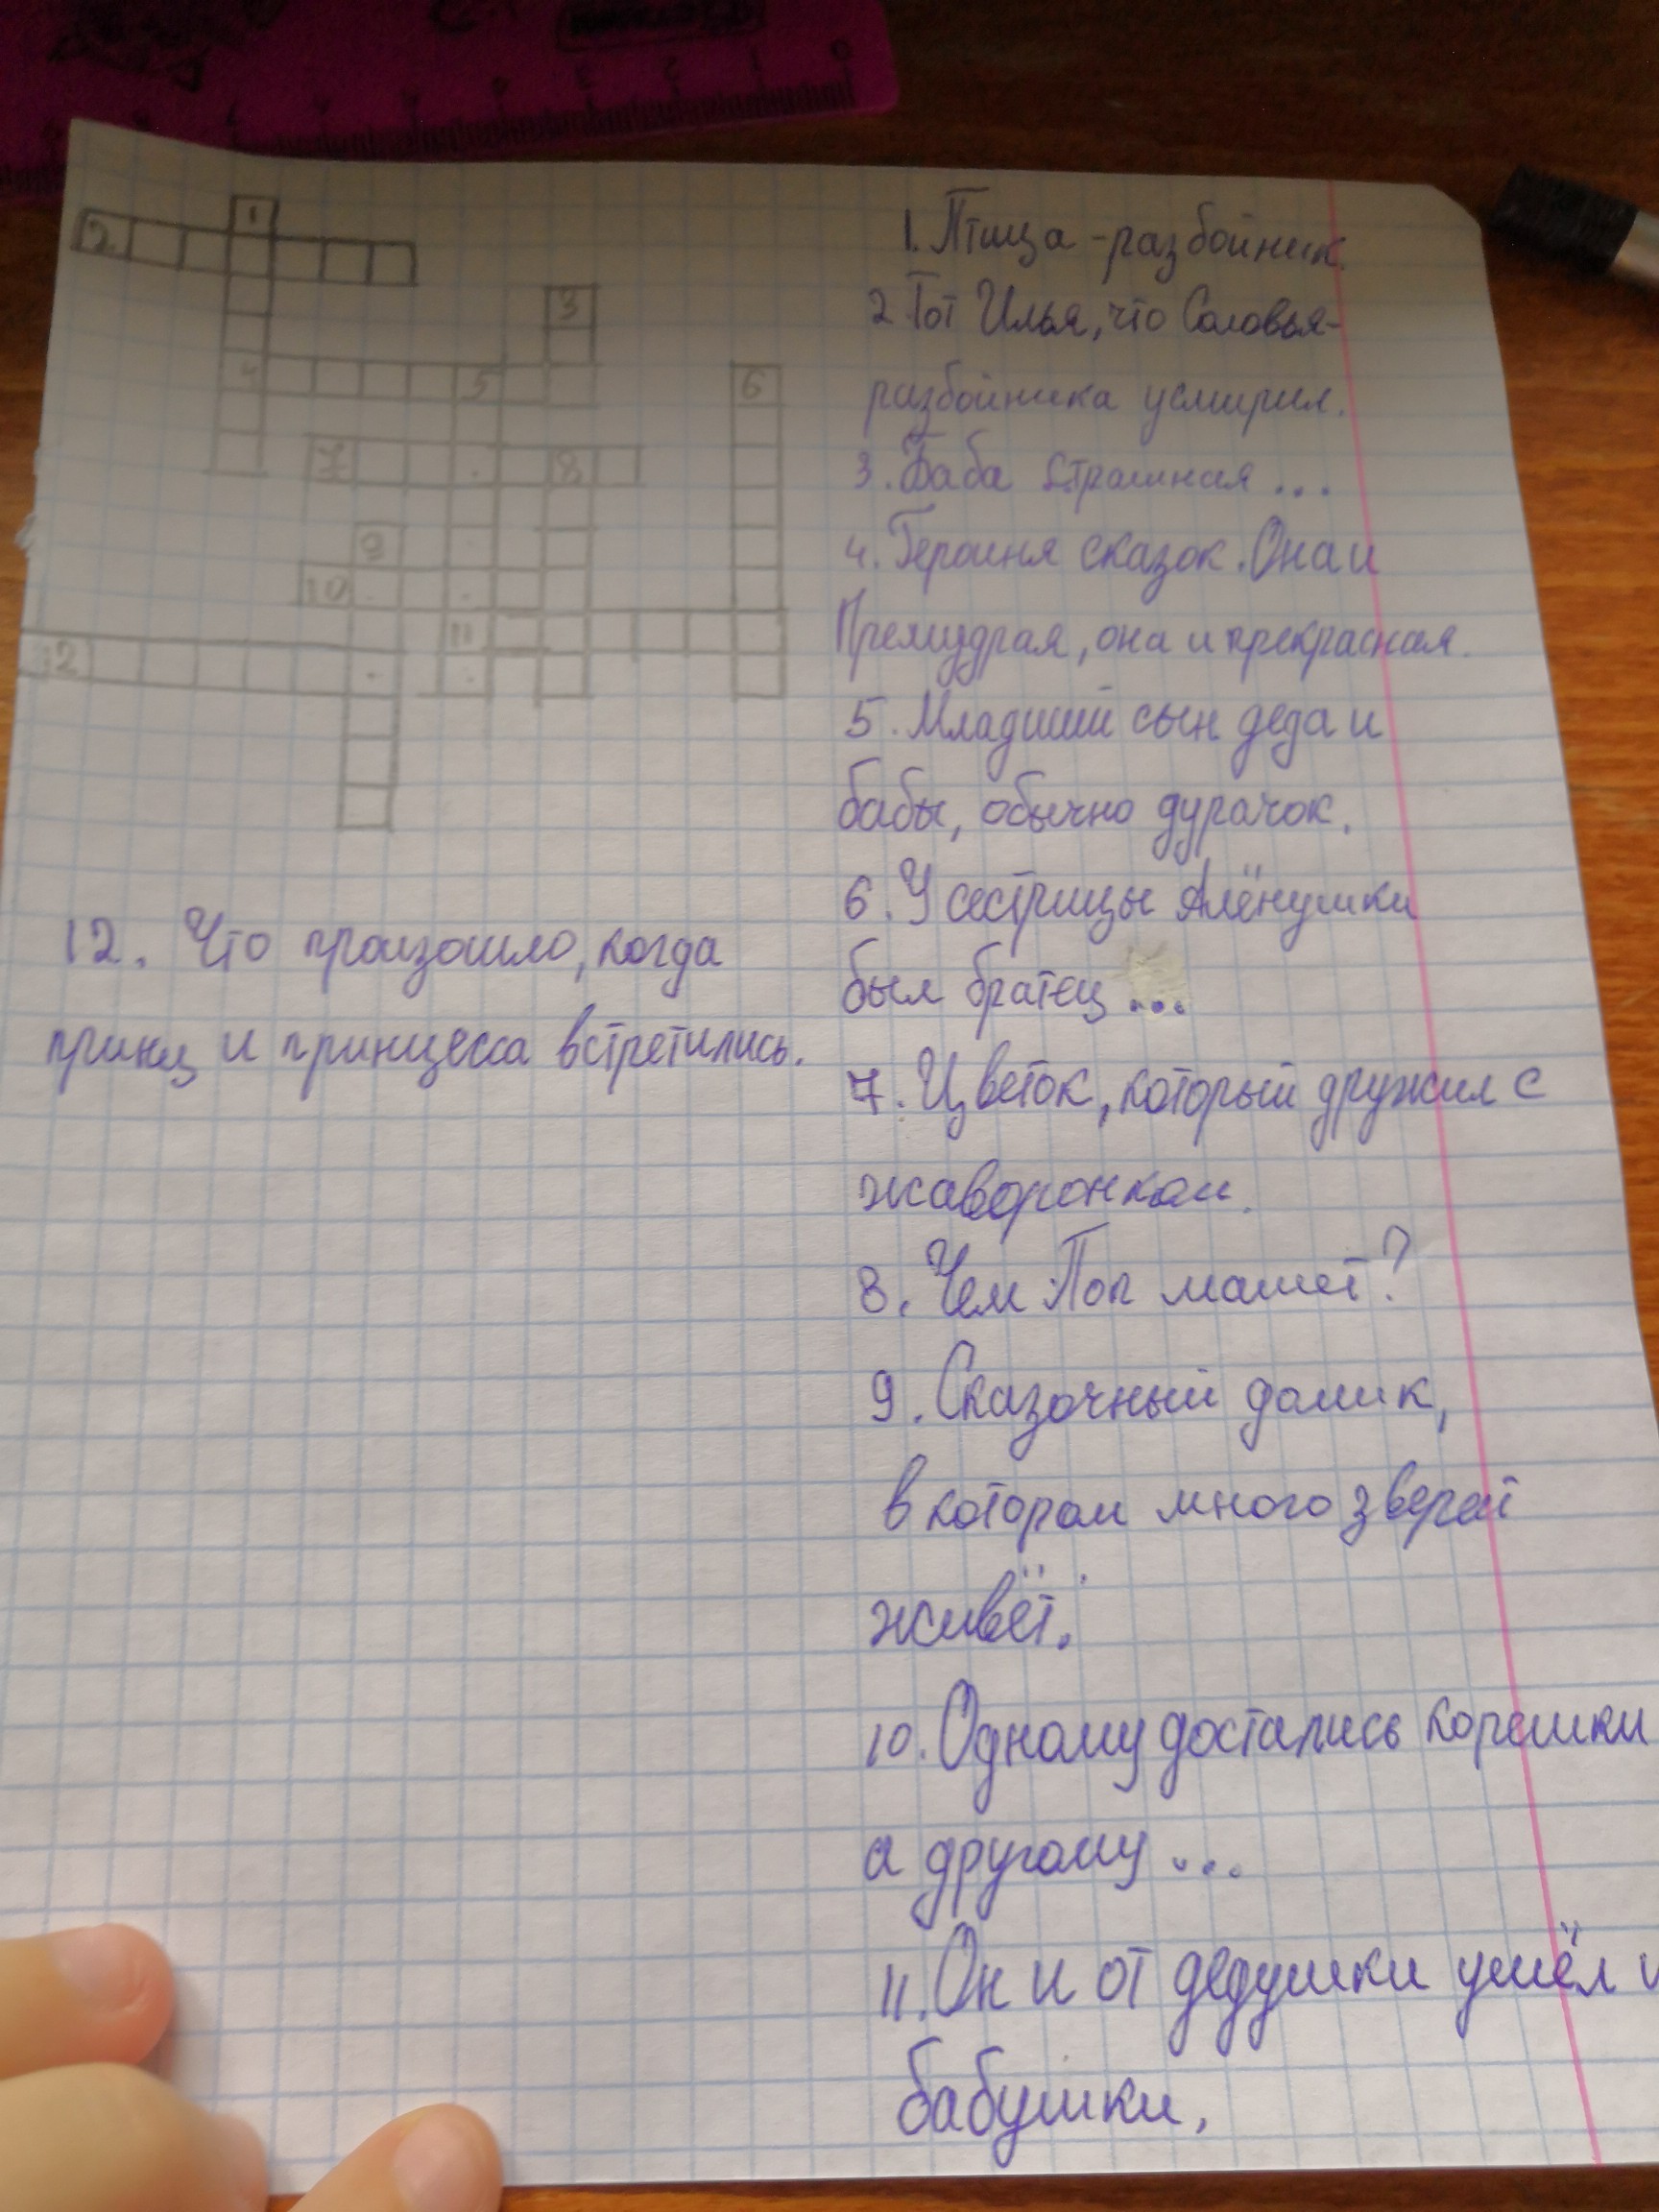 1
2.
3
4
5
6
7
8
9
10
11
12
1. Птица-разбойник.
2 Тот Илья, что Соловья-
разбойника усмирил.
3. Баба Страшная ...
4. Героиня сказок. Она и
Премудрая, она и прекрасная.
5. Младший сын деда и
бабы, обычно дурачок.
6. У сестрицы Алёнушки
был братец ...
7. Цветок, который дружил с
жаворонком.
8. Чем Поп машет?
9. Сказочный домик,
в котором много зверей
живёт.
10. Одному достались корешки
а другому ...
11. Он и от дедушки ушёл и
бабушки,
12. Что произошло, когда
принц и принцесса встретились.